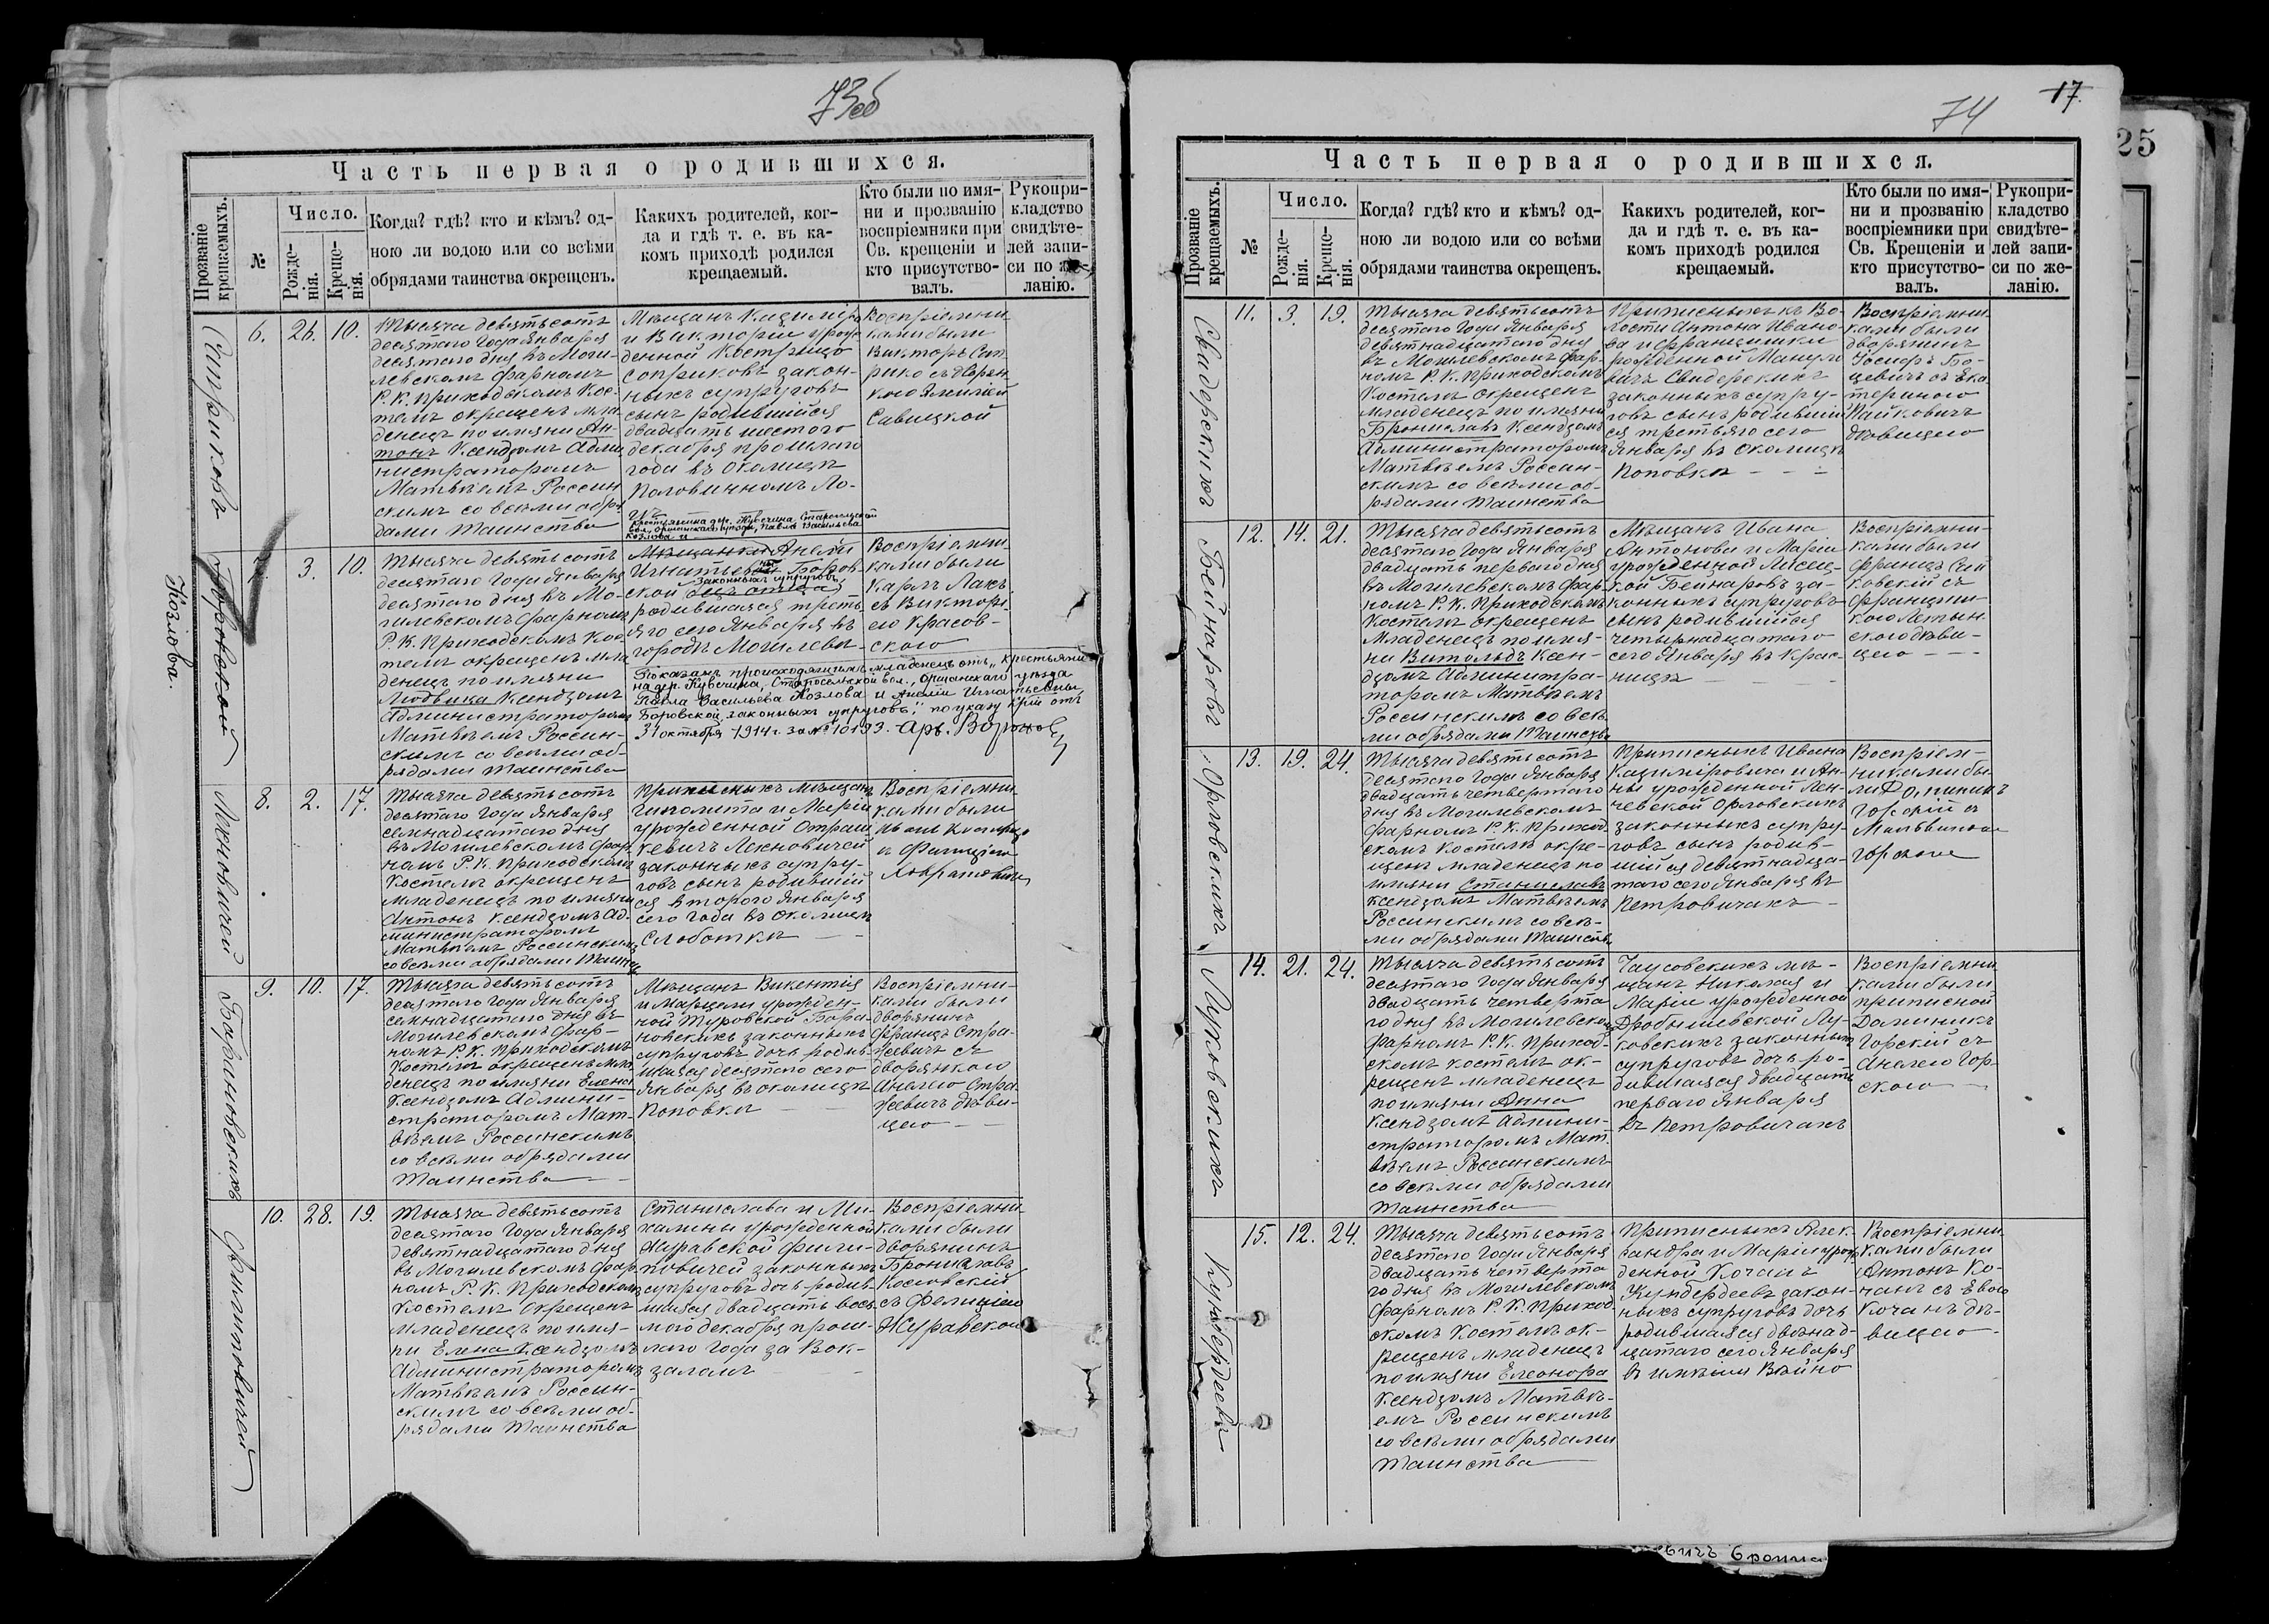 73об
Часть первая о родившихся.
Прозваніе крещаемыхъ.
№
Число.
Рожденія.
Крещенія.
Когда? гдѣ? кто и кѣмъ? од-
ною ли водою или со всѣми
обрядами таинства окрещенъ.
Какихъ родителей, ког-
да и гдѣ т. е. въ ка-
комъ приходѣ родился
крещаемый.
Кто были по имя-
ни и прозванію
воспріемники при
Св. крещеніи и
кто присутство-
валъ.
Рукопри-
кладство
свидѣте-
лей запи-
си по же-
ланію.
Саприкова
6. 26. 10.
Тысяча девятьсотъ
десятаго года Января
десятаго дня въ Моги-
левскомъ фарномъ
Р. К. приходскомъ Кос-
телѣ окрещенъ мла-
денецъ по имяни Ан-
тонъ Ксендзомъ Адми
нистраторомъ
Матвѣемъ Россин
скимъ со всѣми обря
дами Таинства
Мѣщанъ Казиміра
и Викторіи урож
денной Кострицо
Саприковъ закон-
ныхъ супруговъ
сынъ родившійся
двадцать шестого
декабря прошлаго
года въ околицѣ
Половинномъ Ло-
гѣ
Воспріемни-
ками были
Викторъ Сап-
рико съ дворян
кою Эмиліей
Савицкой
Боровской
Козлова.
7. 3. 10.
Тысяча девятьсотъ
десятаго года Января
десятаго дня въ Мо-
гилевскомъ фарномъ
Р. К. Приходскомъ Кос
телѣ окрещенъ мла
денецъ по имяни
Людвика Ксендзомъ
Администраторомъ
Матвѣемъ Россин-
скимъ со всѣми об-
рядами Таинства
Крестьянина дер. Кувечина, Старосельской
вол. Оршанскаго уѣзда, Павла Васильева
Козлова и
Мѣщанки Анели
Игнатьевой Боров-
ской законныхъ супруговъ
родившаяся треть
яго сего Января въ
городѣ Могилевѣ
Воспріемни-
ками были
Карлъ Лакъ
съ Викторі-
ею Красов-
скою
Показанъ происходящимъ младенецъ отъ „крестьяни
на дер. Кувечина, Старосельской вол., Оршанскаго уѣзда
Павла Васильева Козлова и Анеліи Игнатьевны
Боровской законныхъ супруговъ," по указу К-ріи отъ
31 октября 1914 г. за № 10193.
Лехновичей
8. 2. 17.
Тысяча девятьсотъ
десятаго года Января
семнадцатаго дня
въ Могилевскомъ фар
номъ Р. К. Приходскомъ
Костелѣ окрещенъ
младенецъ по имяни
Антонъ Ксендзомъ Ад-
министраторомъ
Матвѣемъ Россинскимъ
со всѣми обрядами Таинст
Приписныхъ мѣщанъ
Гиполита и Маріи
урожденной Отраш
кевичъ Лехновичей
законныхъ супру-
говъ сынъ родивший
ся второго Января
сего года въ околицѣ
Слободкѣ
Воспріемни-
ками были
Барановскихъ
9. 10. 17.
Тысяча девятьсотъ
десятаго года Января
семнадцатаго дня въ
Могилевскомъ фар-
номъ Р. К. Приходскомъ
Костелѣ окрещенъ мла
денецъ по имяни Елена
Ксендзомъ Админи-
страторомъ Мат-
вѣемъ Россинскимъ
со всѣми обрядами
Таинства
Мѣщанъ Викентія
и Марцели урожден-
ной Туровской Бара-
новскихъ законныхъ
супруговъ дочь родив-
шаяся десятаго сего
Января въ околицѣ
Поповкѣ
Воспріемни-
ками были
дворянинъ
Францъ Стра-
жевичъ съ
дворянкою
Анелею Стра-
жевичъ дѣви-
цею
Филиповичей
10. 28. 19.
Тысяча девятьсотъ
десятаго года Января
девятнадцатаго дня
въ Могилевскомъ фар
номъ Р. К. Приходскомъ
Костелѣ окрещенъ
младенецъ по имя-
ни Елена Ксендзомъ
Администраторомъ
Матвѣемъ Россин-
скимъ со всѣми об-
рядами Таинства
Станислава и Ми-
халины урожденной
Журавской Фили-
повичей законныхъ
супруговъ дочь родив-
шаяся двадцать вось
мого декабря прош-
лаго года за Вок-
заломъ
Воспріемни-
ками были
дворянинъ
Брониславъ
Косовскій
съ Фелиціею
Журавскою
74
17.
25
Часть первая о родившихся.
Прозваніе крещаемыхъ.
№
Число.
Рожденія.
Крещенія.
Когда? гдѣ? кто и кѣмъ? од-
ною ли водою или со всѣми
обрядами таинства окрещенъ.
Какихъ родителей, ког-
да и гдѣ т. е. въ ка-
комъ приходѣ родился
крещаемый.
Кто были по имя-
ни и прозванію
воспріемники при
Св. Крещеніи и
кто присутство-
валъ.
Рукопри-
кладство
свидѣте-
лей запи-
си по же-
ланію.
Свидерскихъ
11. 3. 19.
Тысяча девятьсотъ
десятаго года Января
девятнадцатаго дня
въ Могилевскомъ фар-
номъ Р. К. приходскомъ
Костелѣ окрещенъ
младенецъ по имяни
Брониславъ Ксендзомъ
Администраторомъ
Матвѣемъ Россин-
скимъ со всѣми об-
рядами Таинства
Приписныхъ къ Во-
лости Антона Ивано-
ва и Францишки
рожденной Мануле
вичъ Свидерскихъ
законныхъ супру-
говъ сынъ родивший
ся третьяго сего
Января въ околицѣ
Поповкѣ
Воспріемни-
ками были
дворянинъ
Іосифъ Бо-
цевичъ съ Ека
териною
Мацкевичъ
дѣвицею
Бейнаровъ
12. 14. 21.
Тысяча девятьсотъ
десятаго года Января
двадцать перваго дня
въ Могилевскомъ фар-
номъ Р. К. Приходскомъ
Костелѣ окрещенъ
младенецъ по имя-
ни Витольдъ Ксен-
дзомъ Администра-
торомъ Матвѣемъ
Россинскимъ со всѣ-
ми обрядами Таинства
Мѣщанъ Ивана
Антонова и Маріи
урожденной Лисец-
кой Бейнаровъ за-
конныхъ супруговъ
сынъ родившійся
четырнадцатаго
сего Января въ Крас-
ницѣ
Воспріемни-
ками были
Францъ
ковскій съ
Францишкою
дѣви-
цею
Орловскихъ
13. 19. 24.
Тысяча девятьсотъ
десятаго года Января
двадцать четвертаго
дня въ Могилевскомъ
фарномъ Р. К. приход
скомъ Костелѣ окре-
щенъ младенецъ по
имяни Станиславъ
Ксендзомъ Матвѣемъ
Россинскимъ со всѣ-
ми обрядами Таинств
Приписныхъ Ивана
Казиміровича и Ан-
ны урожденной Лен-
чевской Орловскихъ
законныхъ супру-
говъ сынъ родив-
шійся девятнадца-
таго сего Января въ
Петровичахъ
Воспріем-
никами бы-
ли Доминикъ
Горскій съ
Мальвиною
Горскою
Луковскихъ
14. 21. 24.
Тысяча девятьсотъ
десятаго года Января
двадцать четверта
го дня въ Могилевскомъ
фарномъ Р. К. Приход-
скомъ костелѣ ок-
рещенъ младенецъ
по имяни Анна
Ксендзомъ Админи-
страторомъ Мат-
вѣемъ Россинскимъ
со всѣми обрядами
Таинства
Чаусовскихъ мѣ-
щанъ Николая и
Маріи урожденной
Дробышевской Лу-
ковскихъ законныхъ
супруговъ дочь ро-
дившаяся двадцать
перваго Января
въ Петровичахъ
Воспріемни-
ками были
приписной
Доминикъ
Горскій съ
Анелею Гор-
скою
Кундердеевъ
15. 12. 24.
Тысяча девятьсотъ
десятаго года Января
двадцать четверта
го дня въ Могилевскомъ
фарномъ Р. К. Приход
скомъ Костелѣ ок-
рещенъ младенецъ
по имяни Елеонора
Ксендзомъ Матвѣ-
емъ Россинскимъ
со всѣми обрядами
Таинства
Приписныхъ Алек-
сандра и Маріи урож
денной Коханъ
Кундердеевъ закон-
ныхъ супруговъ дочь
родившаяся двѣнад-
цатаго сего Января
въ имѣніи Вейно
Воспріемни-
ками были
Антонъ Ко-
ханъ съ Евою
Коханъ дѣ-
вицею